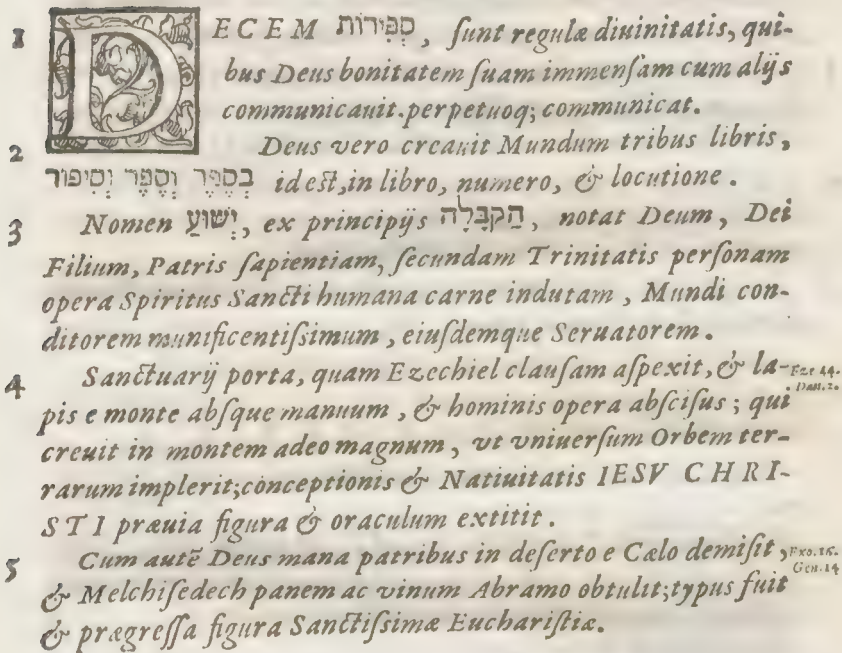 1 DECEM סְפִירוֹת, ſunt regulæ diuinitatis, qui-
bus Deus bonitatem ſuam immenſam cum alijs
communicauit.perpetuoq; communicat.
2 Deus vero creauit Mundum tribus libris,
בְסֵפֶר וְסֵפֶר וְסִיפּוּר id eſt,in libro, numero, & locutione.
3 Nomen יֵשׁוּעַ, ex principijs הַקַבָּלָה, notat Deum, Dei
Filium, Patris ſapientiam, ſecundam Trinitatis perſonam
opera Spiritus Sancti humana carne indutam, Mundi con-
ditorem munificentiſſimum, eiuſdemque Seruatorem.
4 Sanctuarij porta, quam Ezechiel clauſam aſpexit, & la- Eze 44.
Dan.2.
pis e monte abſque manuum, & hominis opera abſciſus; qui
creuit in montem adeo magnum, vt vniuerſum Orbem ter-
rarum implerit;conceptionis & Natiuitatis IESV CHRI-
STI præuia figura & oraculum extitit.
5 Cum autē Deus mana patribus in deſerto e Cælo demiſit, Exo.16.
Gen.14
& Melchiſedech panem ac vinum Abramo obtulit;typus fuit
& prægreſſa figura Sanctiſſimæ Euchariſtiæ.